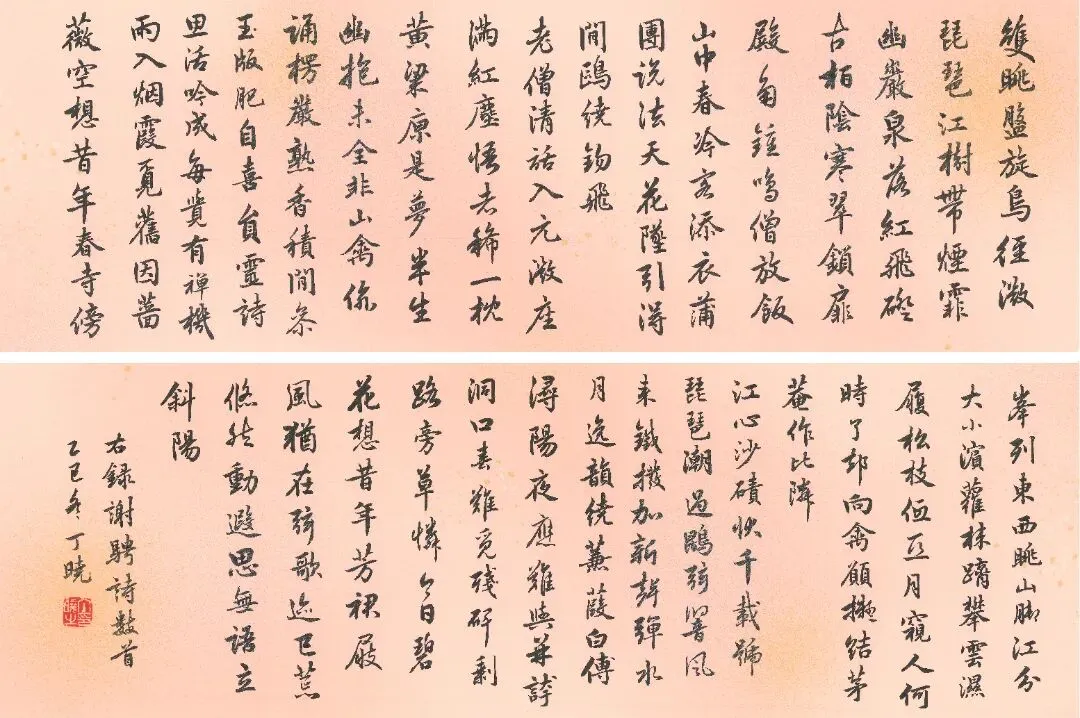 雙眺盤旋鳥徑微
琵琶江樹帶煙霏
幽巖泉落紅飛磴
古柏陰寒翠鎖扉
殿角鐘鳴僧放飯
山中春冷客添衣蒲
團说法天花墜引得
閒鷗绕錫飛
老僧清話入元微座
满紅塵悟者稀一枕
黄粱原是夢半生
幽抱未全非山禽
诵楞嚴熟香積閒参
玉版肥自喜負靈詩
思活吟成每覺有禅機
雨入烟霞覓舊因薔
薇空想昔年春寺傍
峯列東西眺山脚江分
大小濱蘿袜躋攀雲濕
履松枝偃亞月窺人何
時了却向禽願擬結茅
菴作比隣
江心沙磧千載號
琵琶潮過鵾弦響风
来鐵撥加新聲彈水
月逸韻绕蒹葭白傅
潯陽夜應難與并誇
洞口春難觅殘剩
路旁草憐今日碧
花想昔年芳裙屐
風猶在弦歌迹已荒
悠然動遐思無語立
斜陽
右錄謝聘詩数首
乙巳冬丁曉